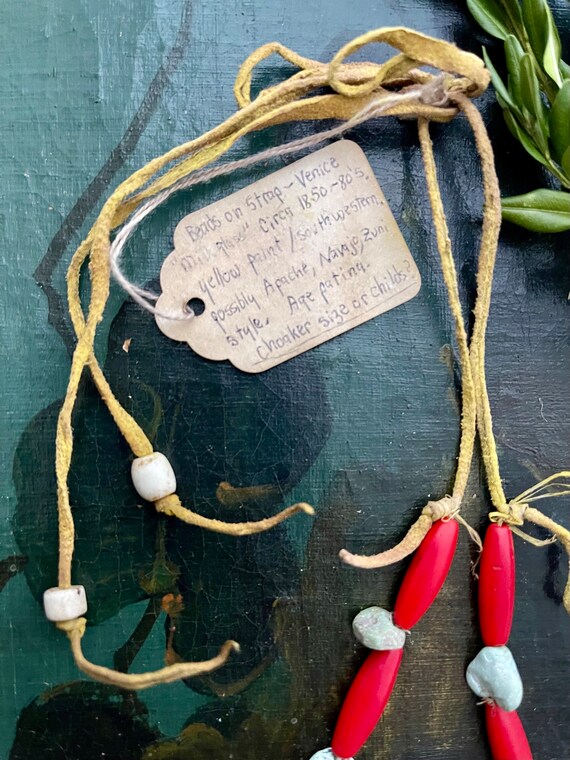 Beads on Strap - Venice
"Milk Glass" Circa 1850-80's.
yellow paint / southwestern.
possibly Apache, Navajo, Zuni
style. Age patina.
Choaker size or childs?